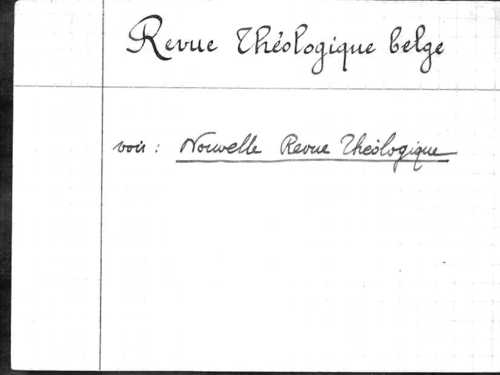 Revue Théologique belge
voir : Nouvelle Revue Théologique